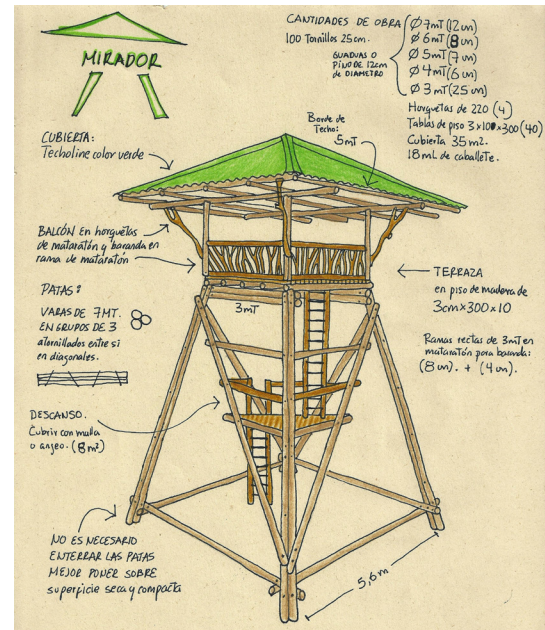 MIRADOR
CANTIDADES DE OBRA
100 Tornillos 25cm.
GUADUAS O
PINO DE 12cm
de DIAMETRO
Ø 7mT (12 un)
Ø 6mT (8 un)
Ø 5mT (7 un)
Ø 4mT (6 un)
Ø 3mT (25 un)
Horquetas de 220 (4)
Tablas de piso 3x10x300 (40)
Cubierta 35 m2.
18mL de caballete.
Borde de
Techo:
5mT
CUBIERTA:
Techoline color verde
BALCÓN en horquetas
de mataratón y baranda en
rama de mataratón
TERRAZA
en piso de madera de
3cm x 300 x 10
3mT
PATAS:
VARAS DE 7MT.
EN GRUPOS DE 3
atornillados entre si
en diagonales.
Ramas rectas de 3mT en
mataratón para baranda:
(8 un). + (4 un).
DESCANSO.
Cubrir con malla
o anjeo. (8 m2)
NO ES NECESARIO
ENTERRAR LAS PATAS
MEJOR PONER SOBRE
superficie seca y compacta
5,6m